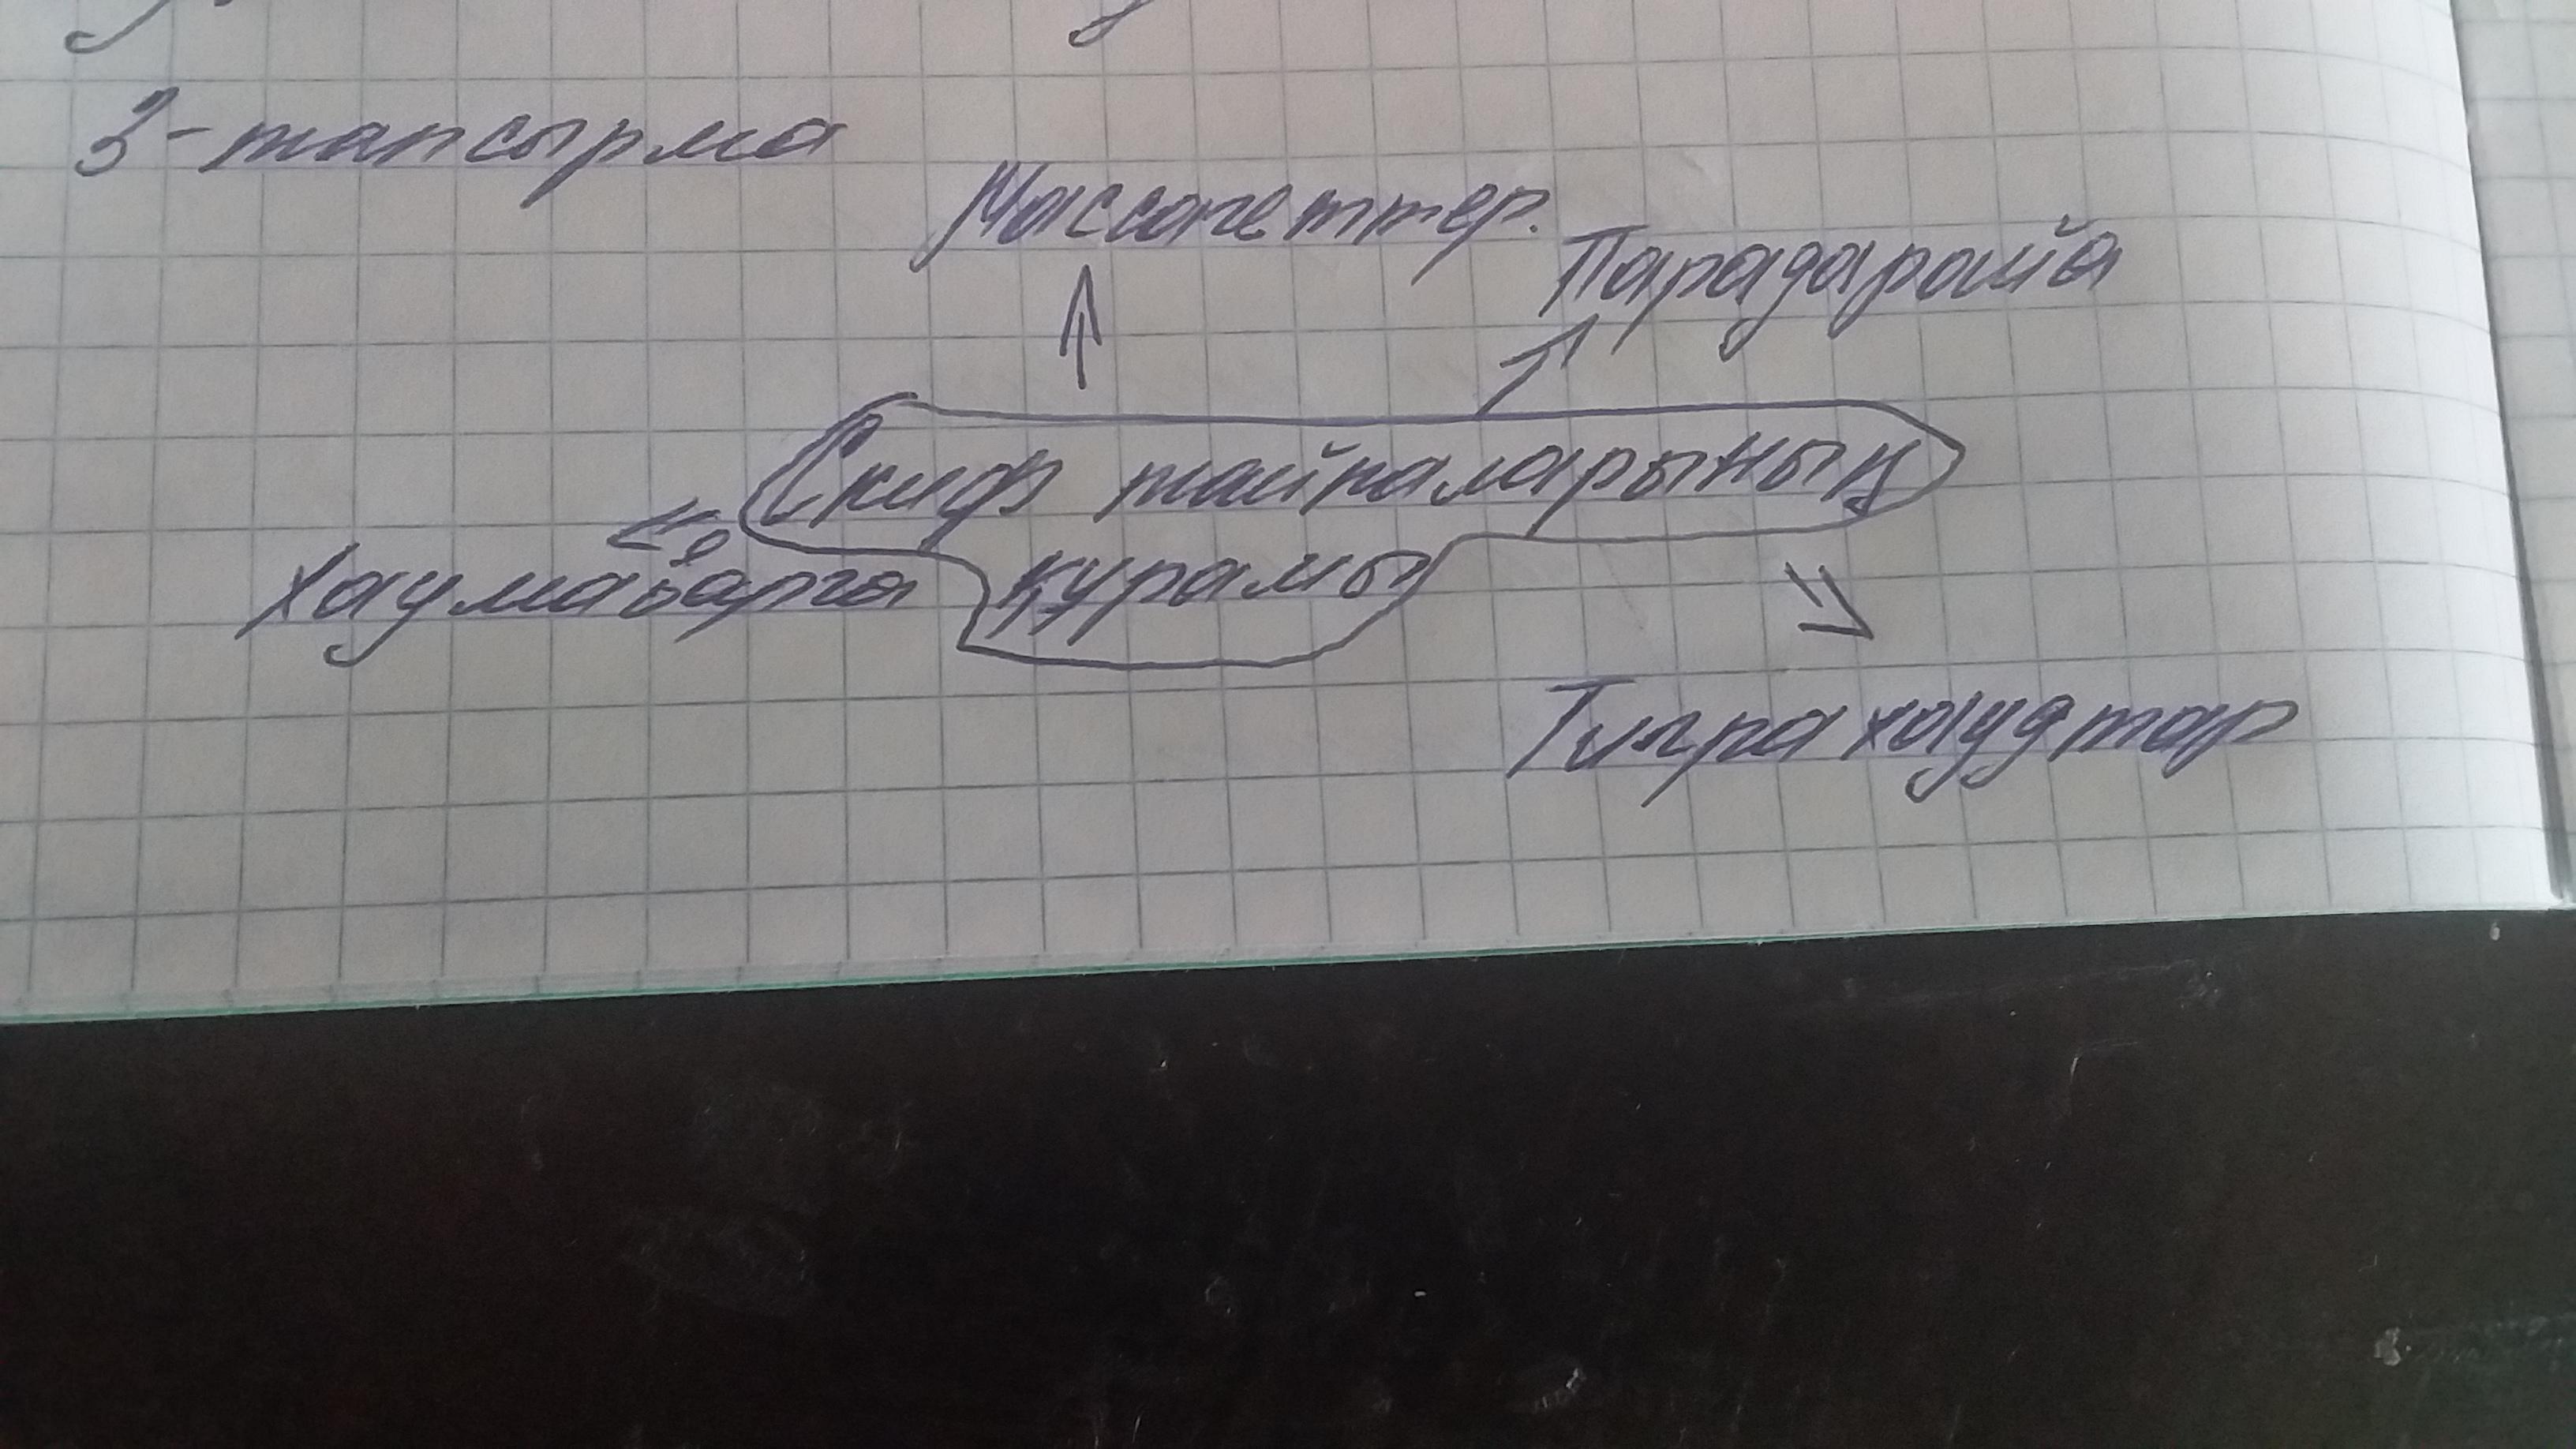 3-тапсырма
Массагеттер.
Парадарайа
Скиф тайпаларының
құрамы
Хаумаварга
Тиграхаудтар